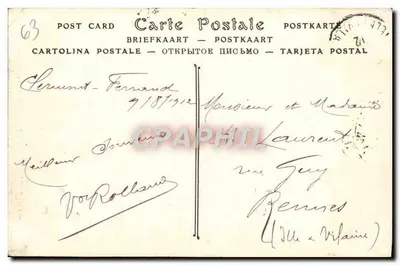 63
POST CARD Carte Postale POSTKARTE
BRIEFKAART — POSTKAART
CARTOLINA POSTALE — ОТКРЫТОЕ ПИСЬМО — TARJETA POSTAL
Clermont-Ferrand
9/8/1912
Meilleur Souvenir
Monsieur et Madame
Laurent
rue
Rennes
(Ille & Vilaine)
12